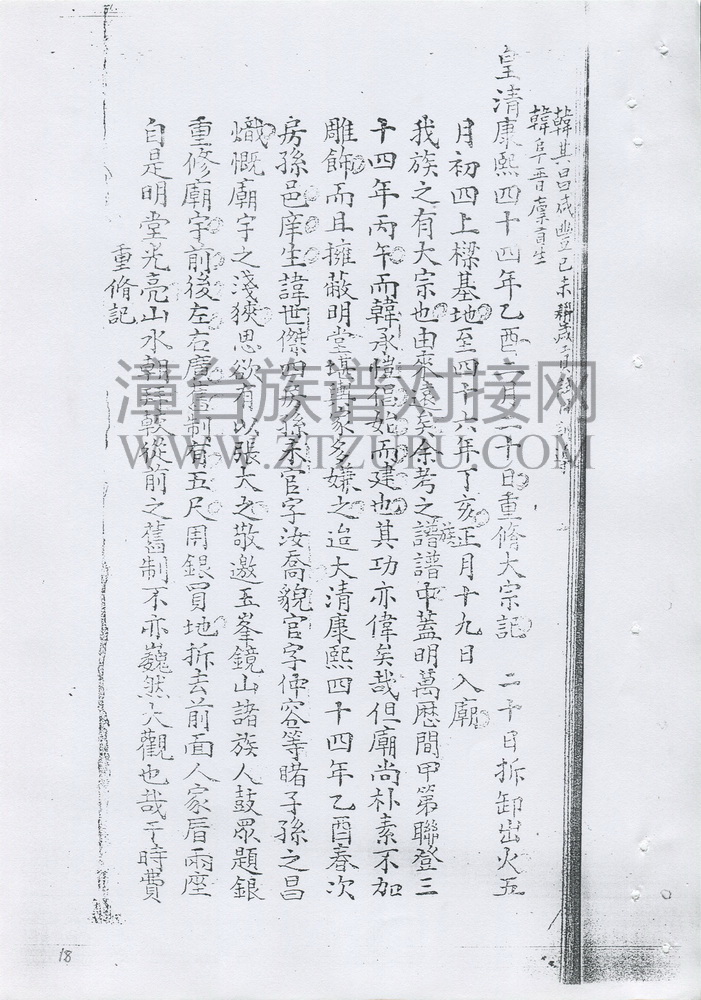 韓其昌咸豐己未
韓阜晋廩
皇清康熙四十四年乙酉二月二十日重脩大宗記 二十日拆卸出火五
月初四上樑基地至四十六年丁亥正月十九日入廟
我族之有大宗也由來遠矣余考之族譜譜中蓋明萬歷間甲第聯登三
十四年丙午而韓承愷倡始而建也其功亦偉矣哉但廟尚朴素不加
雕飾而且擁蔽明堂堪輿家多嫌之迨大清康熙四十四年乙酉春次
房孫邑庠生諱世傑四房孫禾官字汝喬貌官字仲容等睹子孫之昌
熾慨廟宇之淺狹思欲有以張大之敬邀玉峯鏡山諸族人鼓眾題銀
重修廟宇前後左右廣舊制有五尺周銀買地拆去前面人家厝兩座
自是明堂光亮山水朝拜較從前之舊制不亦巍然大觀也哉于時費
重脩記
漳台族谱对接网
WWW.ZTZUPU.COM
18